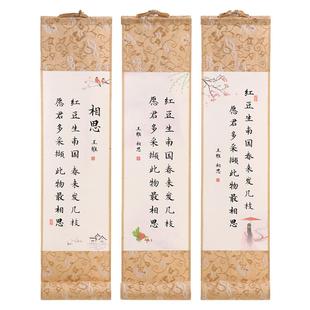 相思
王维
红豆生南国春来发几枝
愿君多采撷此物最相思
红豆生南国春来发几枝
愿君多采撷此物最相思
王维 相思
红豆生南国春来发几枝
愿君多采撷此物最相思
王维 相思